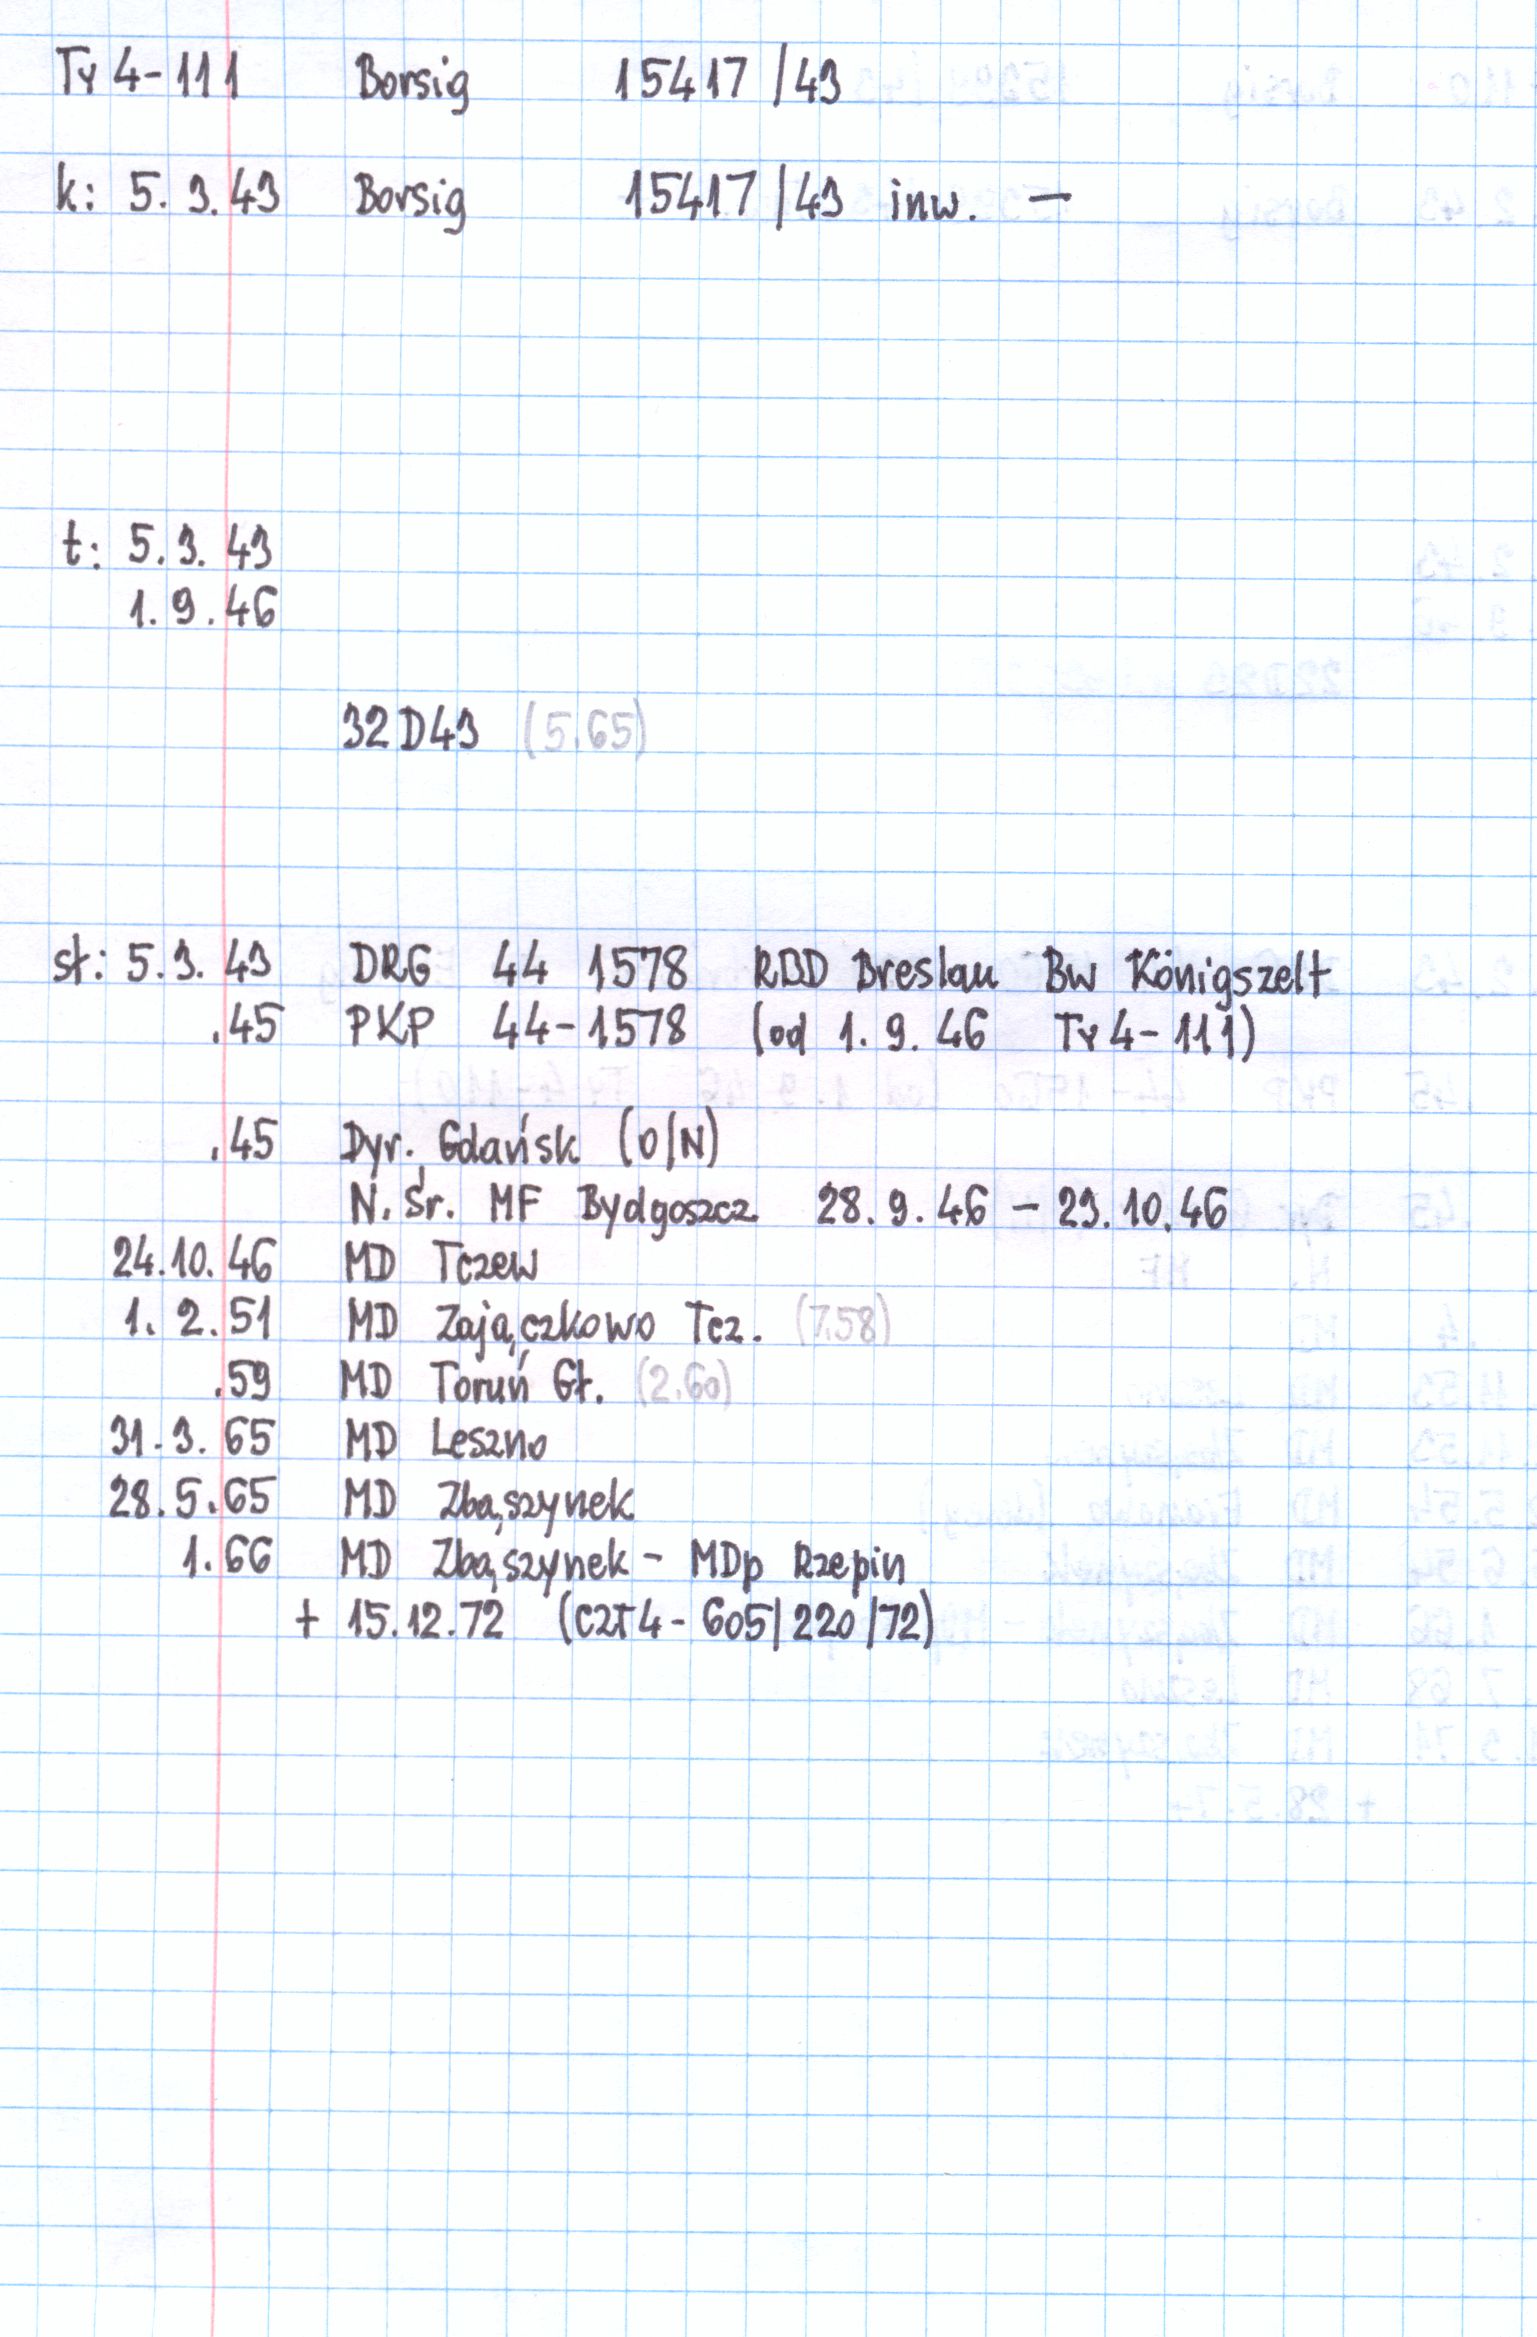 Ty 4-111 Borsig 15417/43
k: 5.3.43 Borsig 15417/43 inw. —
t: 5.3.43
1.9.46
32D43 (5.65)
st: 5.3.43 DRG 44 1578 RBD Breslau Bw Königszelt
.45 PKP 44-1578 (od 1.9.46 Ty4-111)
.45 Dyr. Gdańsk (O/N)
N. Śr. MF Bydgoszcz 28.9.46 - 23.10.46
24.10.46 MD Tczew
1.2.51 MD Zajączkowo Tcz. (7.58)
.59 MD Toruń Gł. (2.60)
31.3.65 MD Leszno
28.5.65 MD Zbąszynek
1.66 MD Zbąszynek - MDp Rzepin
+ 15.12.72 (CZT4-605/220/72)